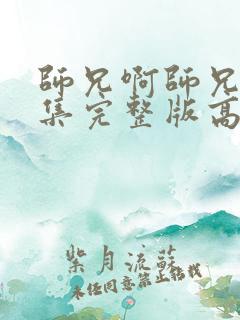 師兄啊師兄
集完整版高
紫月流蘇
未經同意禁止轉載